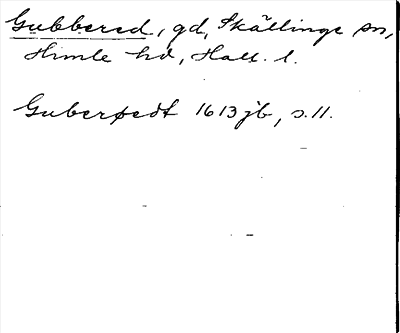 Gubbered, gd, Skällinge sn,
Himle hd, Hall. l.
Guberødt 1613 jb, s. 11.